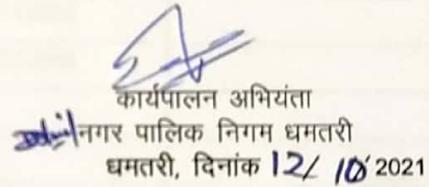 कार्यपालन अभियंता
नगर पालिक निगम धमतरी
धमतरी, दिनांक 12/10/2021